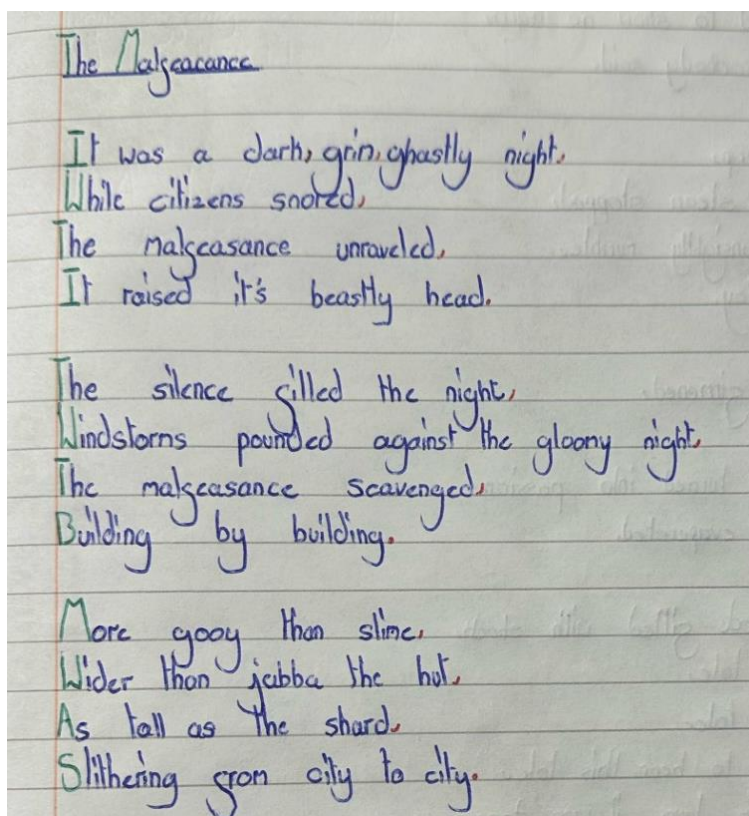 The Malfeacance
It was a dark, grim, ghastly night,
While citizens snored,
The malfeasance unraveled,
It raised it's beastly head.
The silence filled the night,
Windstorms pounded against the gloomy night,
The malfeasance scavenged,
Building by building.
More gooy than slime,
Wider than jabba the hut,
As tall as the shard,
Slithering from city to city.